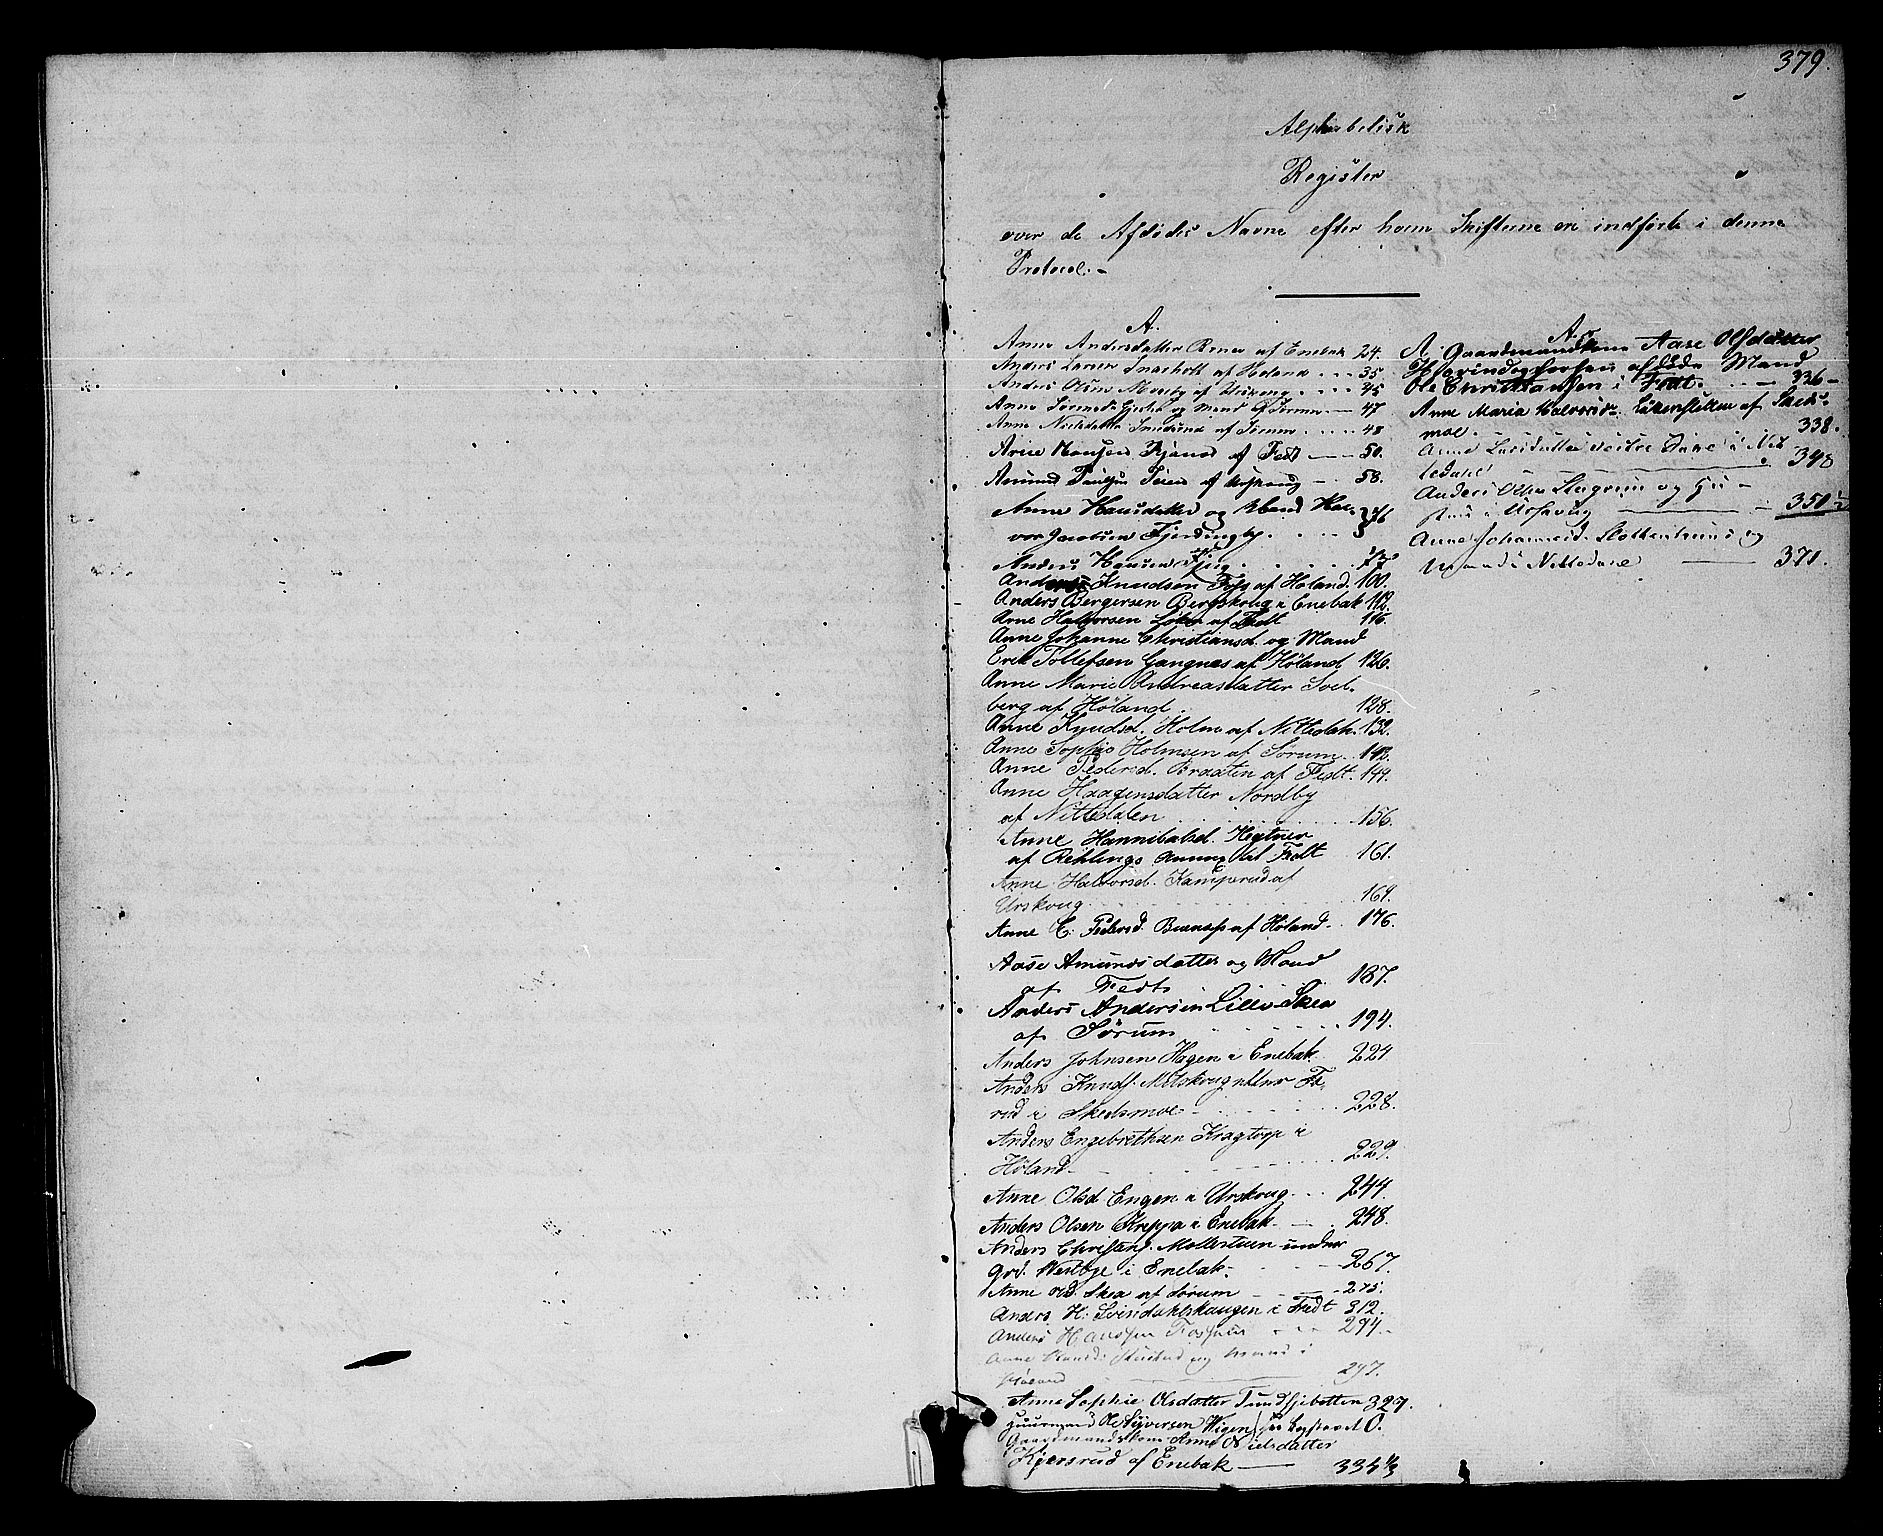 379.
Alphabetisk
Register
over de Afdødes Navne efter hvem Skifterne ere indførte i denne
Protocol. -
A.
Anne Andersdatter af Enebak 24.
Anders Larsen af Høland 35.
Anders Olsen af Urskoug 45
Anne og Mand af Sørum 47
Anne Nielsdatter af Sørum 48
Arne Hansen af Fedt 50.
Amund af Urskoug 58.
Anne Hansdatter og Mand Hal-
vor Jacobsen Fjerdingby
Anders Hansen
Anders Knudsen af Høland. 100.
Anders Bergersen Bergskoug i Enebak 102.
Arne Halvorsen af Fedt 116.
Anne Johanne Christiansd. og Mand
Erik Tollefsen Gangnæs af Høland 126.
Anne Marie Andreasdatter Soel-
berg af Høland. 128.
Anne Knudsd. Holm af Nittedal. 132.
Anne Sophie Holmsen af Sørum. 142.
Anne Pedersd. Braaten af Fedt. 144.
Anne Haagensdatter Nordby
af Nittedalen 156.
Anne Hannibalsd. Hegtner
af Rehlings Fedt 161.
Anne Halvorsd. Kamperud af
Urskoug 169.
Anne C. Pedersd. af Høland. 176.
Aase Amundsdatter og Mand
af Fedt 187.
Anders Andersen Lille Skea
af Sørum 194.
Anders Johnsen Hagen i Enebak 224.
Anders Knuds.
rud i Skedsmoe 228.
Anders Engebrethsen Kragtorp i
Høland 229.
Anne Olsd. Engen i Urskoug 244.
Anders Olsen Kreppa i Enebak 248.
Anders Christens. Møllerstuen under
grd. Westbye i Enebak 267.
Anne Old. Skea af Sørum 275.
Anders H. Svindahlshaugen i Fedt 312.
Anders Hanssen 294.
Anne og Mand i
Høland 297.
Anne Sophie Olsdatter 327.
Ole Syversen Wigen O.
Gaardmandskone Anne Nielsdatter
Kjersrud af Enebak 334 1/3
A.
A. Gaardmandskone Aase Olsdatter
Mand
Ole Christiansen i Fedt. 336
Anne Maria Halvorsd. af Skeds-
moe. 338.
Anne Larsdatter i Nit-
tedal 348
Anders Olsen og Hu-
stru i Urskoug 350 1/2
Anne Johannesd. og
Mand i Nittedal 371.